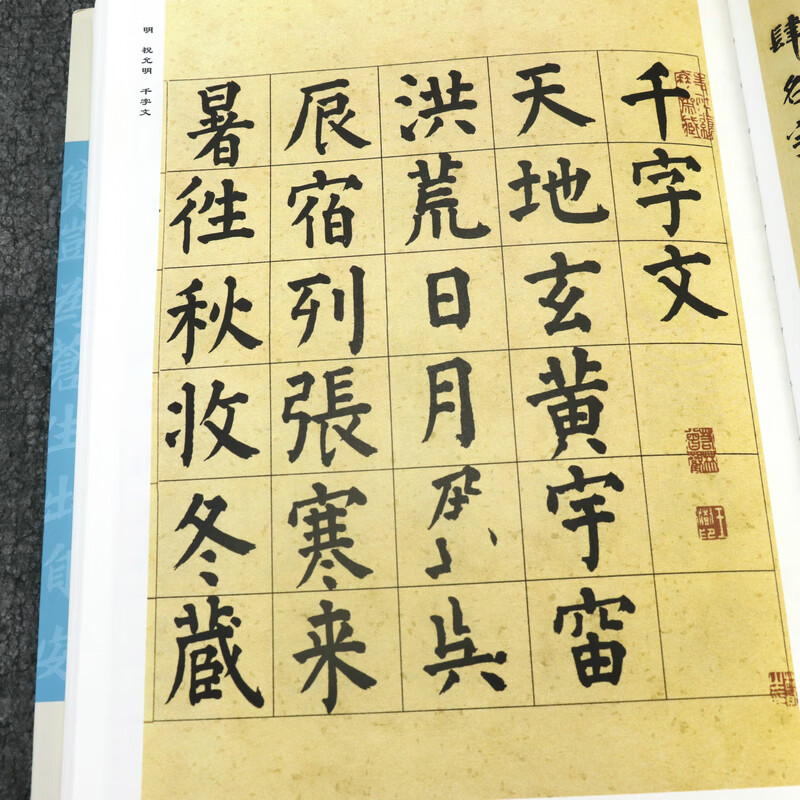 千字文
天地玄黄宇宙
洪荒日月盈昃
辰宿列張寒来
暑往秋收冬藏
明 祝允明 千字文